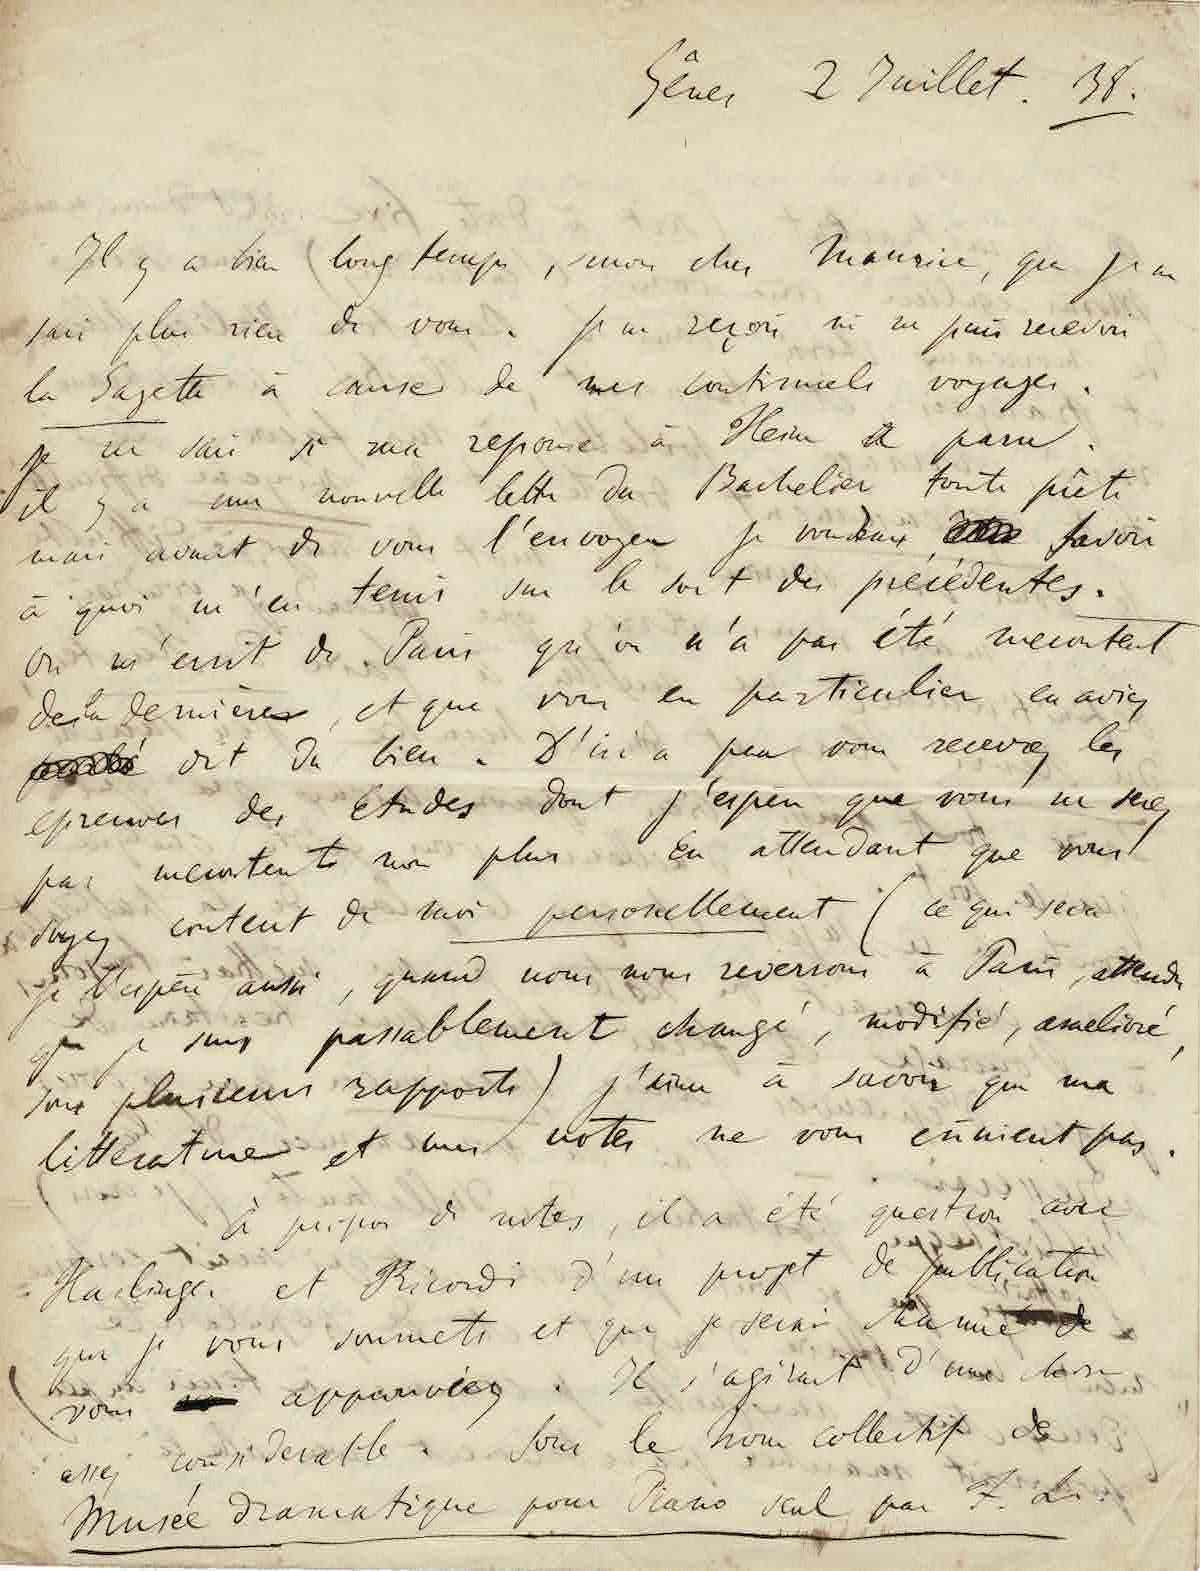 Gênes 2 Juillet. 38.
Il y a bien longtemps, mon cher Maurice, que je ne
sais plus rien de vous. Je ne reçois ni ne puis recevoir
la Gazette à cause de mes continuels voyages.
je ne sais si ma reponse à Heine a paru.
il y a une nouvelle lettre du Bachelier toute prête
mais avant de vous l'envoyer je voudrais savoir
à quoi m'en tenir sur le sort des précédentes.
On m'ecrit de Paris qu'on n'a pas été mecontent
de la dernière, et que vous en particulier en aviez
dit du bien. D'ici a peu vous recevrez les
epreuves des Etudes dont j'espère que vous ne serez
pas mecontents non plus En attendant que vous
soyez content de moi personellement (ce qui sera
je l'espère aussi, quand nous nous reverrons à Paris, attendu
que je suis passablement changé, modifié, amelioré,
sous plusieurs rapports) j'aime à savoir que ma
littérature et mes notes ne vous ennuient pas.
à propos de notes, il a été question avec
Haslinger et Ricordi d'un projet de publication
que je vous soumets et que je serai charmé de
vous approuviez. Il s'agirait d'une chose
assez considerable. Sous le nom collectif de
Musée dramatique pour Piano seul par F. Li.